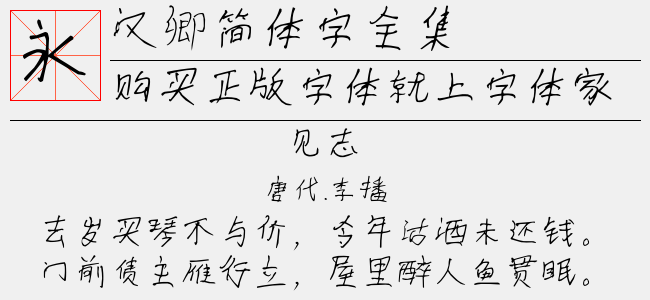 永
汉卿简体字全集
购买正版字体就上字体家
见志
唐代.李播
去岁买琴不与价，今年沽酒未还钱。
门前债主雁行立，屋里醉人鱼贯眠。